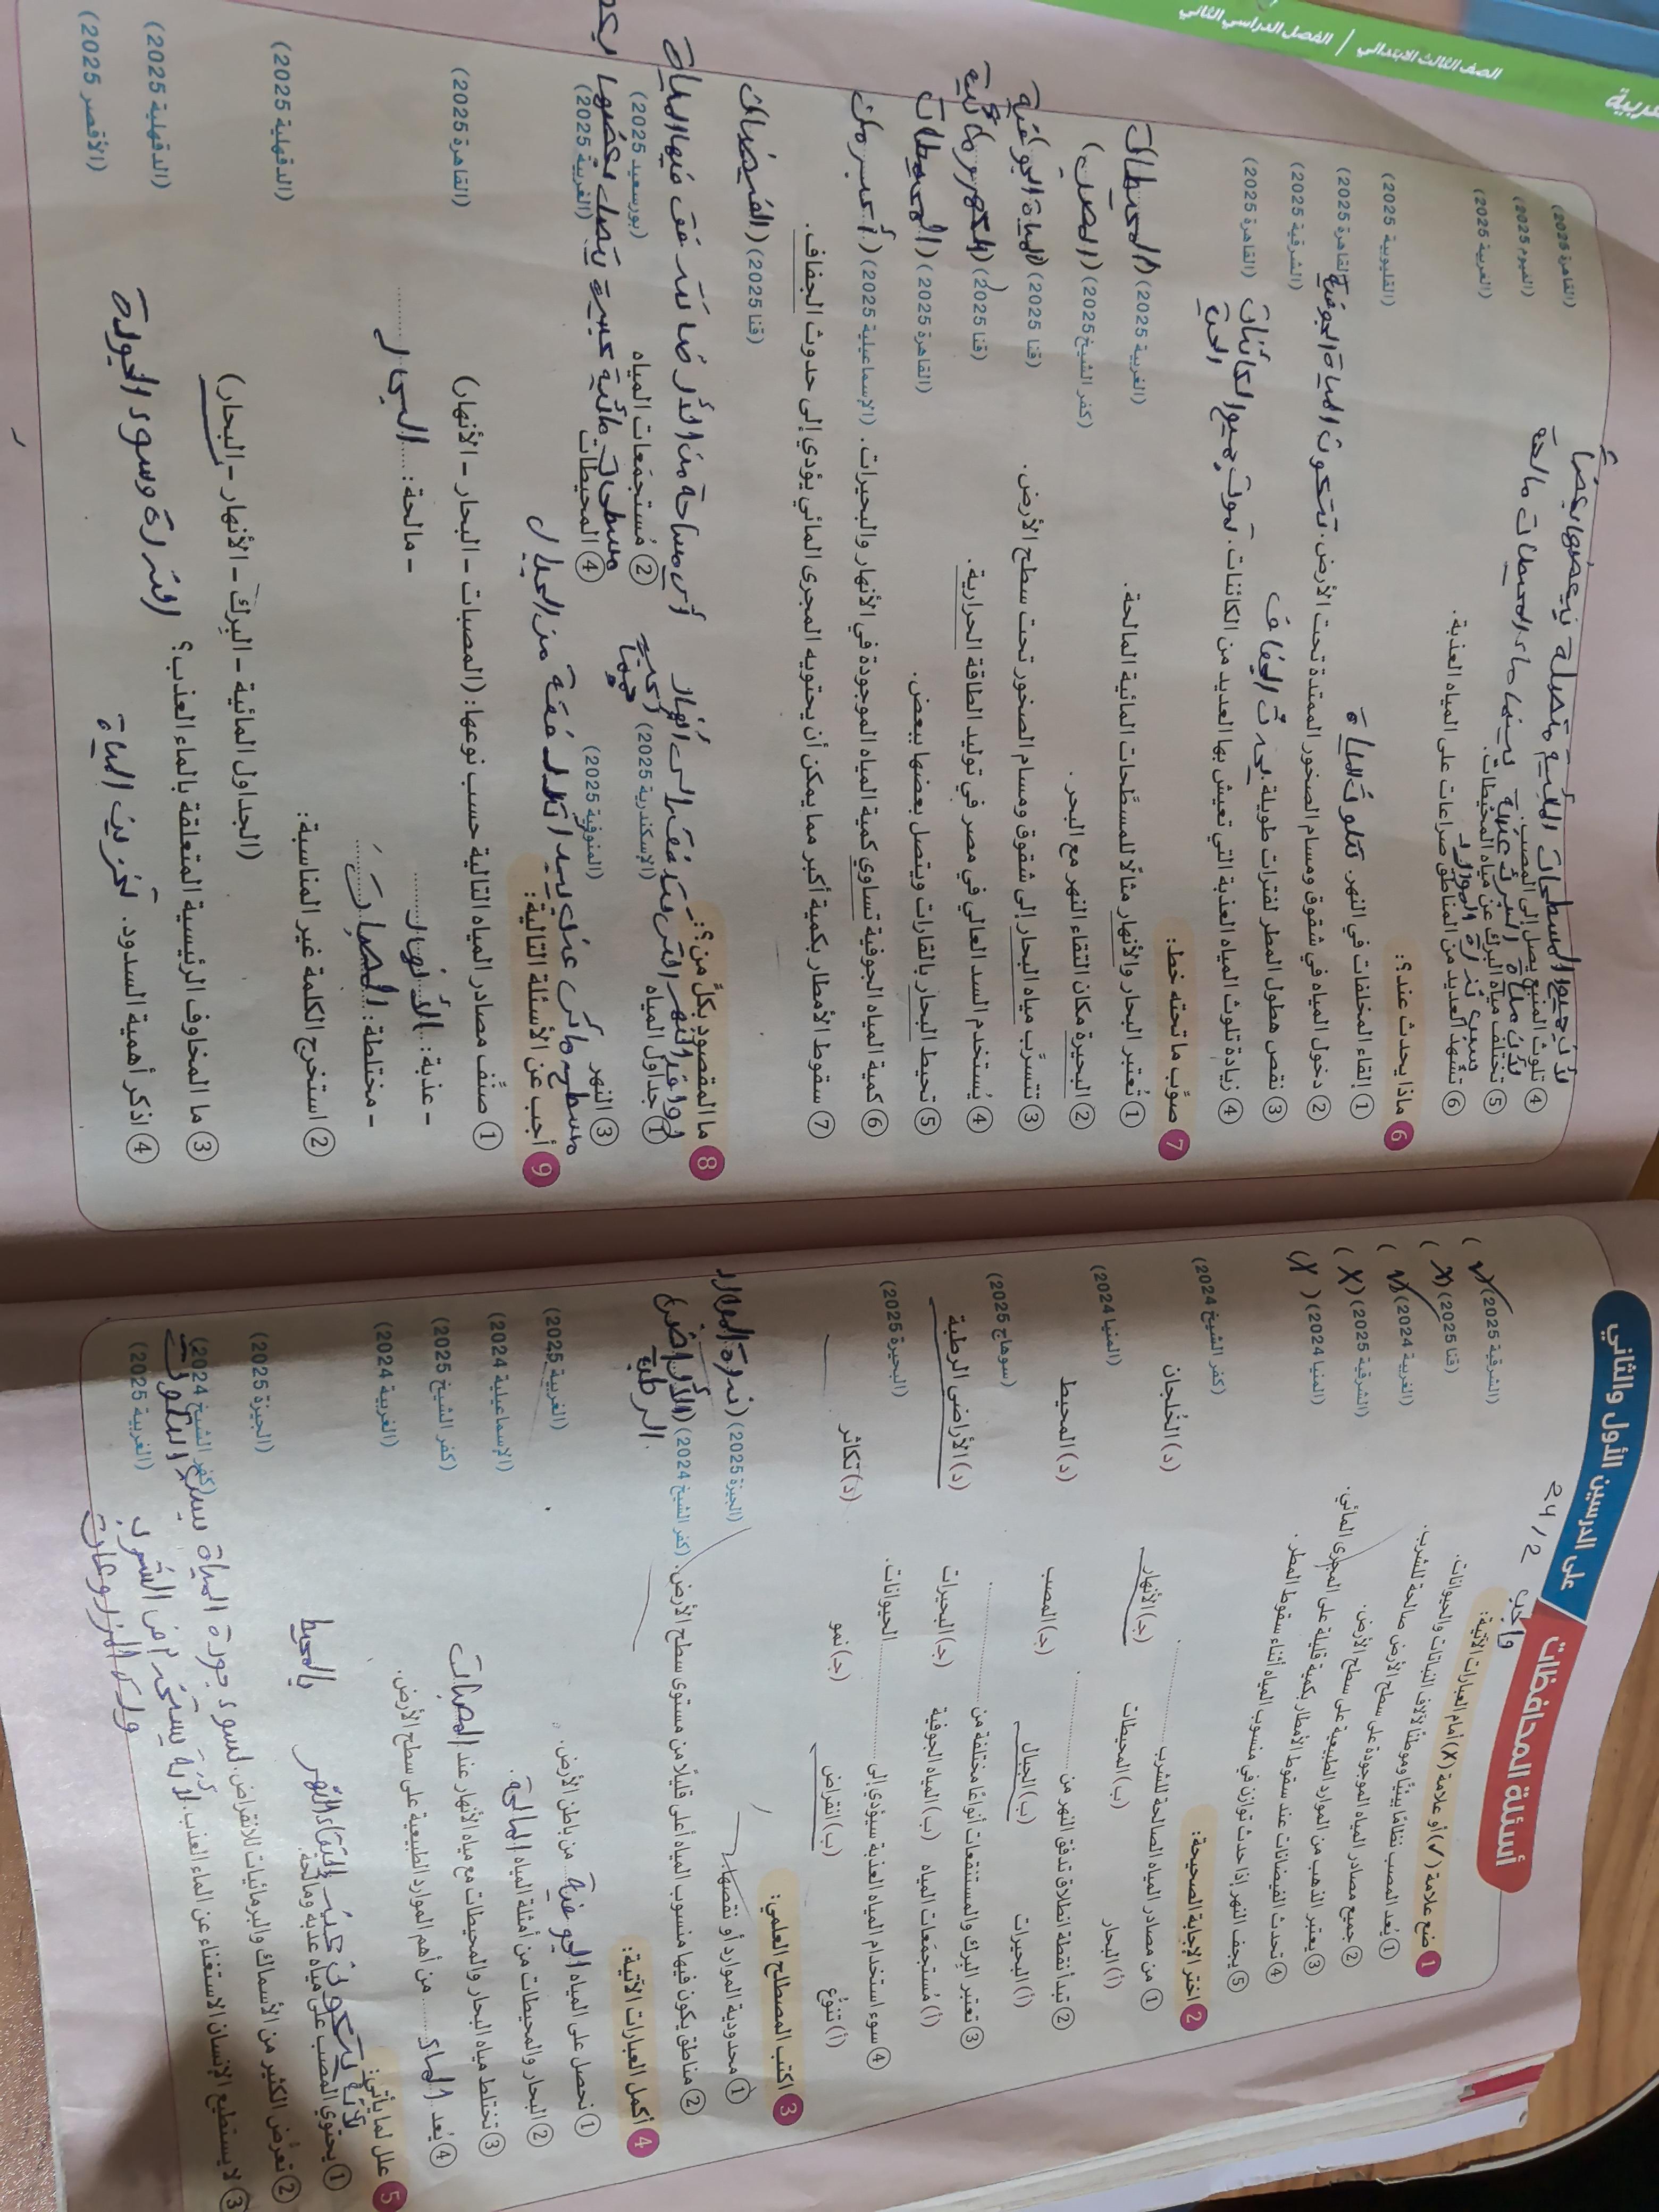 أسئلة المحافظات على الدرسين الأول والثاني
واجب 24/2
1 ضع علامة (✓) أو علامة (X) أمام العبارات الآتية:
① يُعد المصب نظامًا بيئيًّا وموطنًا لآلاف النباتات والحيوانات. (الشرقية 2025) (✓)
② جميع مصادر المياه الموجودة على سطح الأرض صالحة للشرب. (قنا 2025) (X)
③ يعتبر الذهب من الموارد الطبيعية على سطح الأرض. (الغربية 2024) (✓)
④ تحدث الفيضانات عند سقوط الأمطار بكمية قليلة على المجرى المائي. (الشرقية 2025) (X)
⑤ يجف النهر إذا حدث توازن في منسوب المياه أثناء سقوط المطر. (المنيا 2024) (X)
2 اختر الإجابة الصحيحة:
① من مصادر المياه الصالحة للشرب ............ (كفر الشيخ 2024)
(أ) البحار (ب) المحيطات (جـ) الأنهار (د) الخلجان
② تبدأ نقطة انطلاق تدفق النهر من ............ (المنيا 2024)
(أ) البحيرات (ب) الجبال (جـ) المصب (د) المحيط
③ تعتبر البرك والمستنقعات أنواعًا مختلفة من ............ (سوهاج 2025)
(أ) مُستجمَعات المياه (ب) المياه الجوفية (جـ) البحيرات (د) الأراضي الرطبة
④ سوء استخدام المياه العذبة سيؤدي إلى ............ الحيوانات. (البحيرة 2025)
(أ) تنوُّع (ب) انقراض (جـ) نمو (د) تكاثر
3 اكتب المصطلح العلمي:
① محدودية الموارد أو نقصها. (الجيزة 2025) (ندرة الموارد
② مناطق يكون فيها منسوب المياه أعلى قليلًا من مستوى سطح الأرض. (كفر الشيخ 2024) (الأراضي
الرطبة
4 أكمل العبارات الآتية:
① نحصل على المياه الجوفية من باطن الأرض. (الغربية 2025)
② البحار والمحيطات من أمثلة المياه المالحة. (الإسماعيلية 2024)
③ تختلط مياه البحار والمحيطات مع مياه الأنهار عند المصبات (كفر الشيخ 2025)
④ يُعد الماء من أهم الموارد الطبيعية على سطح الأرض. (الغربية 2024)
5 علل لما يأتي:
لأنه يتكون عند التقاء النهر بالمحيط
① يحتوي المصب على مياه عذبة ومالحة. (الجيزة 2025)
② تعرُّض الكثير من الأسماك والبرمائيات للانقراض. لسوء جودة المياة بسبب التلوث (كفر الشيخ 2024)
③ لا يستطيع الإنسان الاستغناء عن الماء العذب. لأنة يستخدم في الشرب (الغربية 2025)
لأن جميع المسطحات المائية متصلة ببعضها بعضاً
④ تلوث المنبع يصل إلى المصب. (القاهرة 2025)
لأن مياة البرك عذبة بينما ماء المحيطات مالحة
⑤ تختلف مياه البرك عن مياه المحيطات. (الفيوم 2025)
بسبب ندرة الموارد
⑥ تشهد العديد من المناطق صراعات على المياه العذبة. (الغربية 2025)
6 ماذا يحدث عند؟:
① إلقاء المخلفات في النهر. تتلوث المياة (القليوبية 2025)
② دخول المياه في شقوق ومسام الصخور الممتدة تحت الأرض. تتكون المياة الجوفية (القاهرة 2025)
③ نقص هطول المطر لفترات طويلة. يحدث الجفاف (الشرقية 2025)
④ زيادة تلوث المياه العذبة التي تعيش بها العديد من الكائنات. تموت جميع الكائنات الحية (القاهرة 2025)
7 صوِّب ما تحته خط:
① تُعتبر البحار والأنهار مثالًا للمسطَّحات المائية المالحة. (الغربية 2025) (المحيطات
② البحيرة مكان التقاء النهر مع البحر. (كفر الشيخ 2025) (المصب)
③ تتسرَّب مياه البحار إلى شقوق ومسام الصخور تحت سطح الأرض. (قنا 2025) (المياة الجوفية
④ يُستخدم السد العالي في مصر في توليد الطاقة الحرارية. (قنا 2025) (الكهرومائية
⑤ تحيط البحار بالقارات ويتصل بعضها ببعض. (القاهرة 2025) (المحيطات
⑥ كمية المياه الجوفية تساوي كمية المياه الموجودة في الأنهار والبحيرات. (الإسماعيلية 2025) (أكبر من
⑦ سقوط الأمطار بكمية أكبر مما يمكن أن يحتويه المجرى المائي يؤدي إلى حدوث الجفاف. (قنا 2025) (الفيضان
8 ما المقصود بكلٍّ من؟:
① جداول المياه (الإسكندرية 2025)
② مُستجمَعات المياه (بورسعيد 2025)
أي مساحة من الأرض تتدفق فيها المياة
③ النهر (المنوفية 2025)
مسطح مائي عذب يبدأ تدفقة من الجبال
④ المحيطات (الغربية 2025)
مسطحات مائية كبيرة يتصل بعضها
9 أجب عن الأسئلة التالية:
① صنِّف مصادر المياه التالية حسب نوعها: (المصبات – البحار – الأنهار) (القاهرة 2025)
- عذبة: الأنهار - مالحة: البحار
- مختلطة: المصبات
② استخرج الكلمة غير المناسبة: (الدقهلية 2025)
(الجداول المائية – البرك – الأنهار – البحار)
③ ما المخاوف الرئيسية المتعلقة بالماء العذب؟ الندرة وسوء الجودة (الدقهلية 2025)
④ اذكر أهمية السدود. تخزين المياة (الأقصر 2025)
الصف الثالث الابتدائي | الفصل الدراسي الثاني